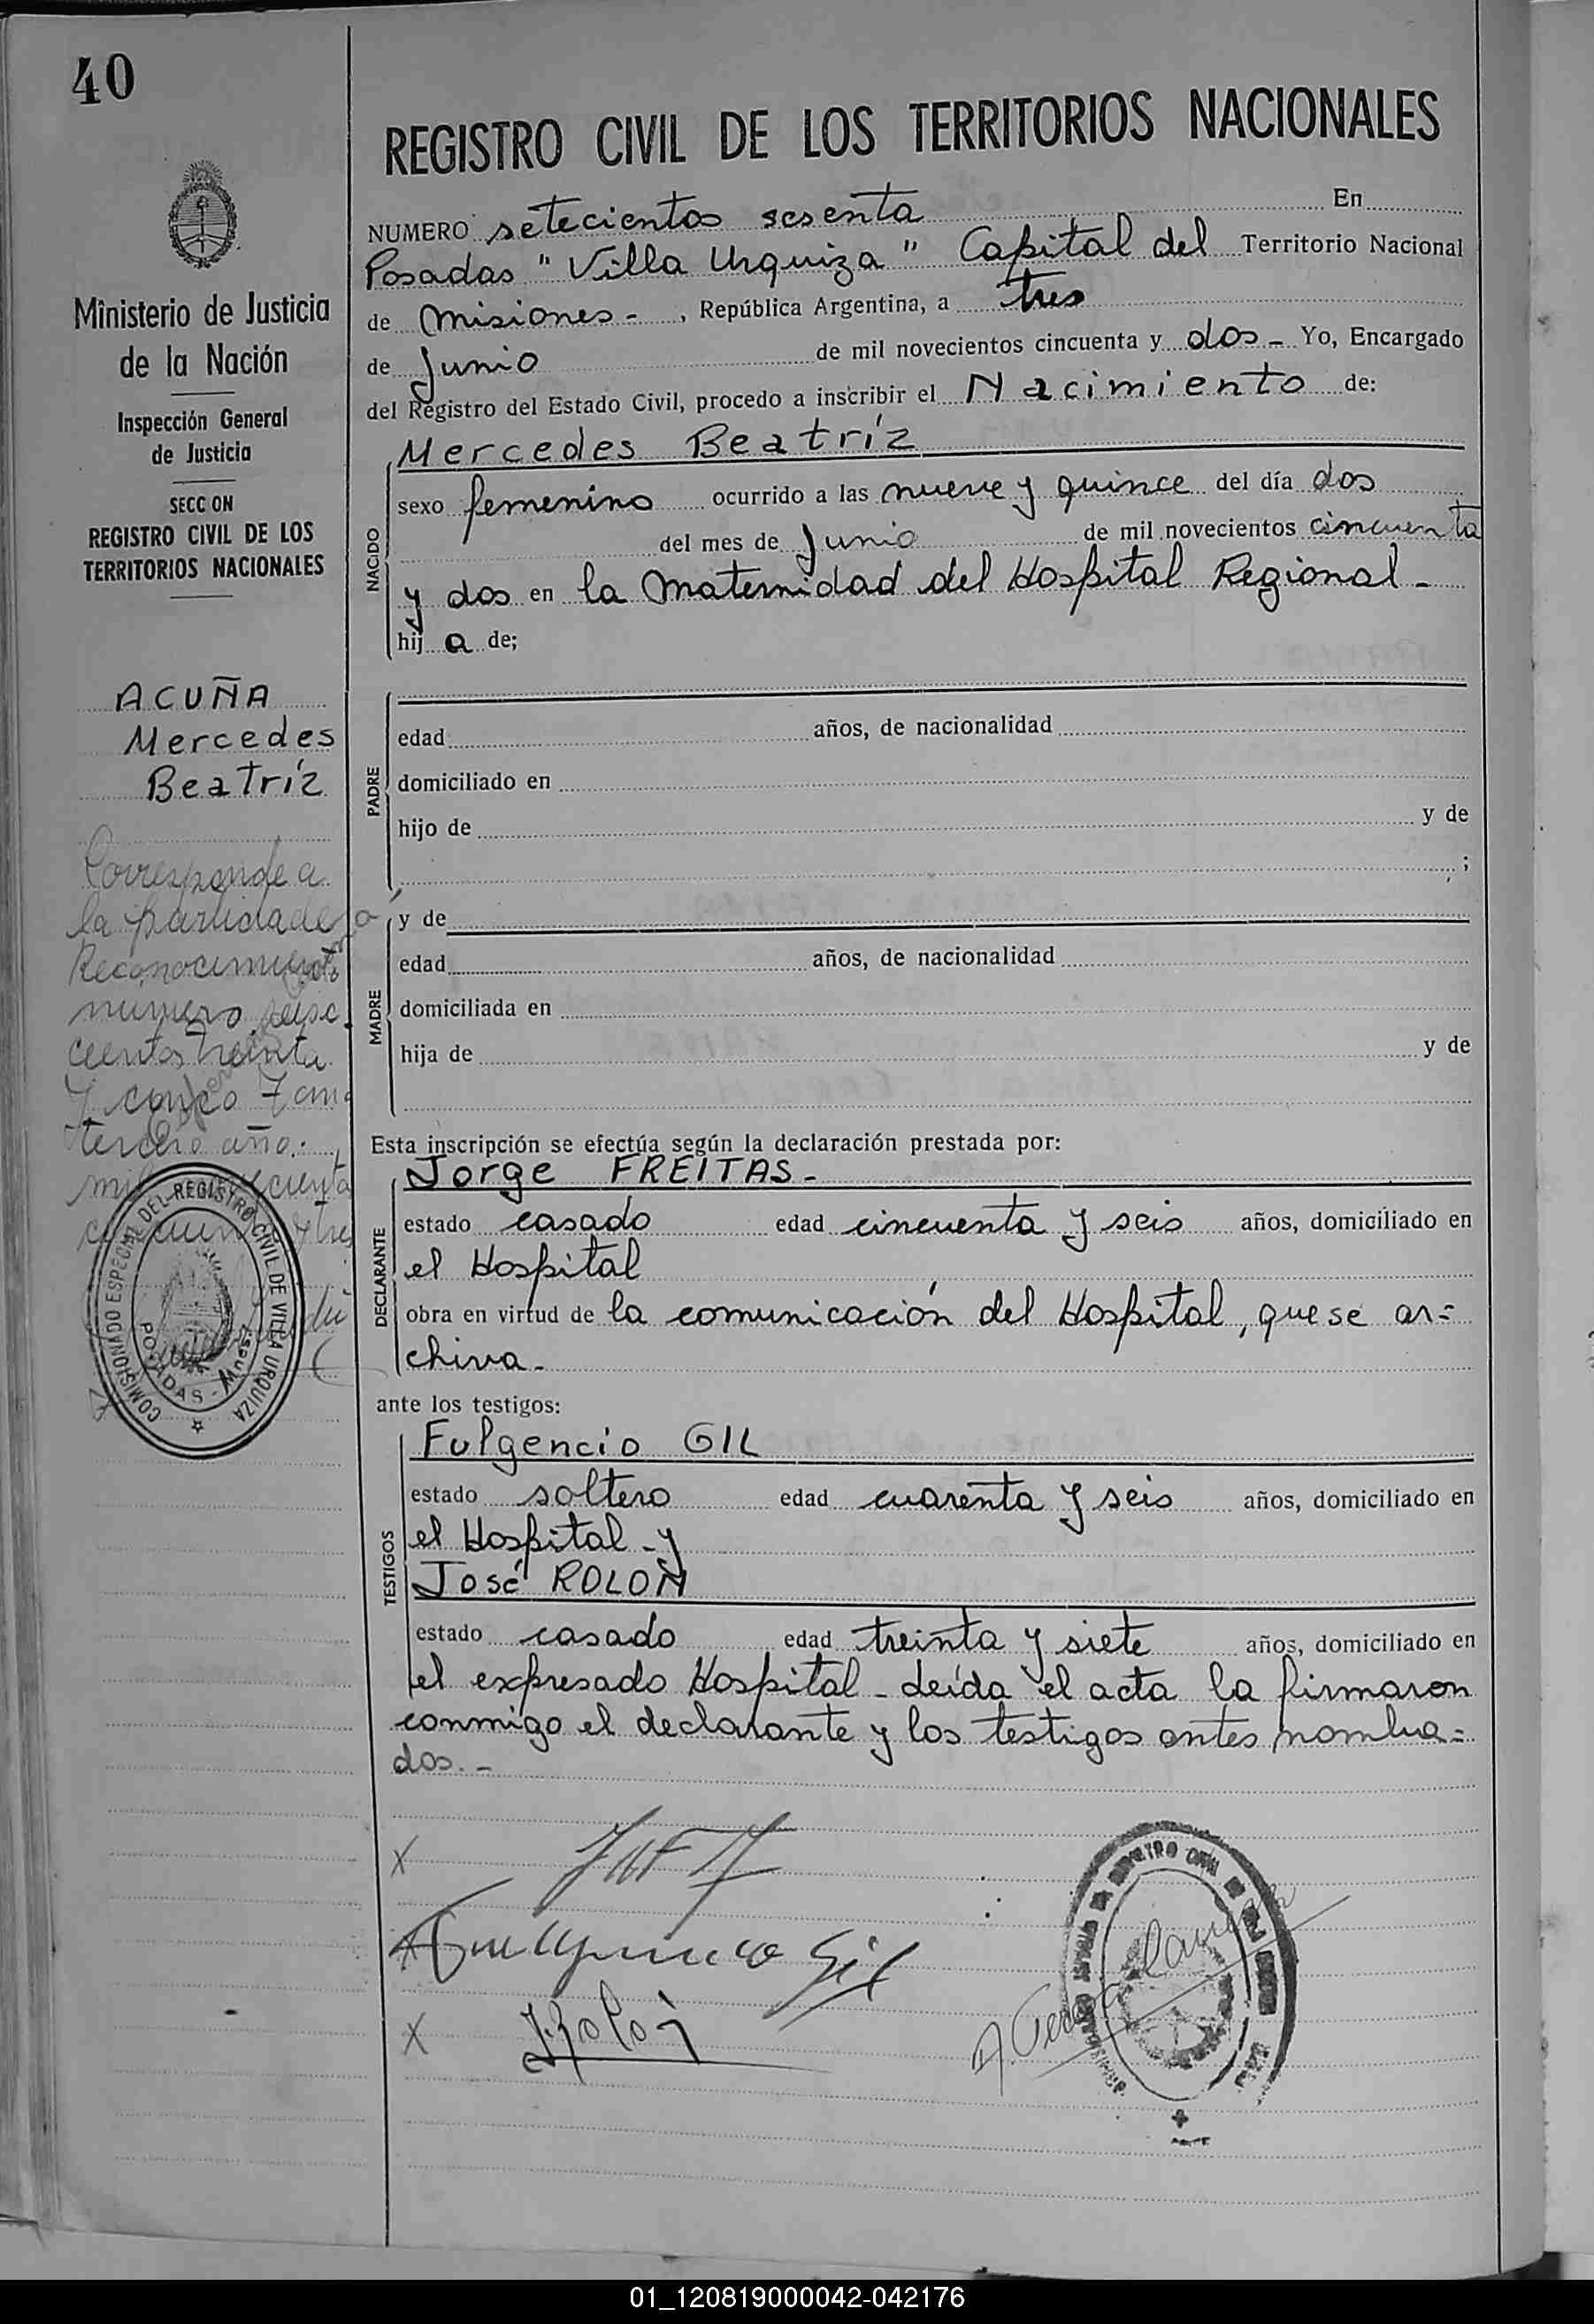 40
Ministerio de Justicia
de la Nación
Inspección General
de Justicia
SECCION
REGISTRO CIVIL DE LOS
TERRITORIOS NACIONALES
ACUÑA
Mercedes
Beatríz
Corresponde a
la partida de
Reconocimiento
número seisc
cientos treinta
y cinco
tercero año
COMISIONADO ESPECIAL DEL REGISTRO CIVIL DE VILLA URQUIZA
POSADAS - Mnes.
REGISTRO CIVIL DE LOS TERRITORIOS NACIONALES
NUMERO setecientos sesenta En
Posadas "Villa Urquiza" Capital del Territorio Nacional
de Misiones - , República Argentina, a tres
de Junio de mil novecientos cincuenta y dos - Yo, Encargado
del Registro del Estado Civil, procedo a inscribir el Nacimiento de:
NACIDO
Mercedes Beatríz
sexo femenino ocurrido a las nueve y quince del día dos
del mes de Junio de mil novecientos cincuenta
y dos en la Maternidad del Hospital Regional -
hij a de;
PADRE
edad años, de nacionalidad
domiciliado en
hijo de y de
;
MADRE
y de
edad años, de nacionalidad
domiciliada en
hija de y de
Esta inscripción se efectúa según la declaración prestada por:
DECLARANTE
Jorge FREITAS -
estado casado edad cincuenta y seis años, domiciliado en
el Hospital
obra en virtud de la comunicación del Hospital, que se ar=
chiva -
ante los testigos:
TESTIGOS
Fulgencio GIL
estado soltero edad cuarenta y seis años, domiciliado en
el Hospital - y
José ROLON
estado casado edad treinta y siete años, domiciliado en
el expresado Hospital - Leída el acta la firmaron
conmigo el declarante y los testigos antes nombra=
dos. -
X
X Gil
X J. Rolon
01_120819000042-042176